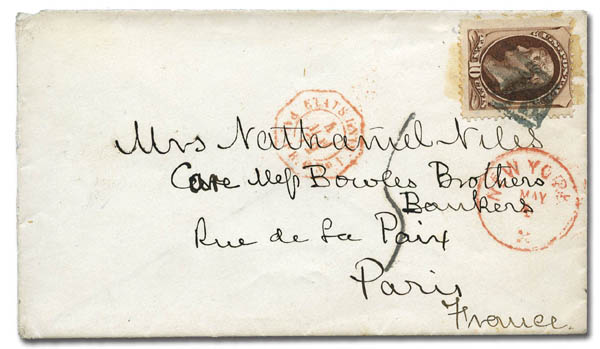 Mrs Nathaniel Niles
Care Mess Bowles Brothers
Bankers
Rue de La Paix
Paris
France
5
10
NEW YORK
MAY
ETATS UNIS